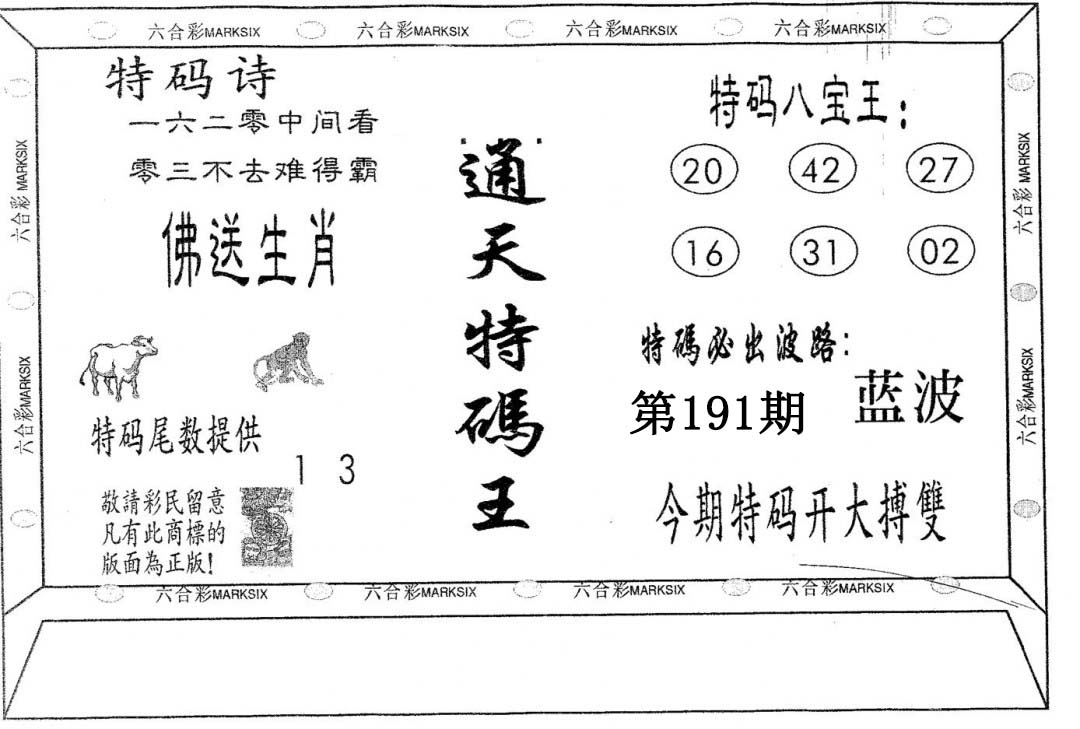 六合彩MARKSIX 六合彩MARKSIX 六合彩MARKSIX 六合彩MARKSIX
六合彩 MARKSIX
六合彩MARKSIX
特码诗
一六二零中间看
零三不去难得霸
佛送生肖
特码尾数提供
1 3
敬請彩民留意
凡有此商標的
版面為正版!
通天特碼王
特码八宝王:
20 42 27
16 31 02
特碼必出波路:
第191期 蓝波
今期特码开大搏雙
六合彩 MARKSIX
六合彩MARKSIX
六合彩MARKSIX 六合彩MARKSIX 六合彩MARKSIX 六合彩MARKSIX